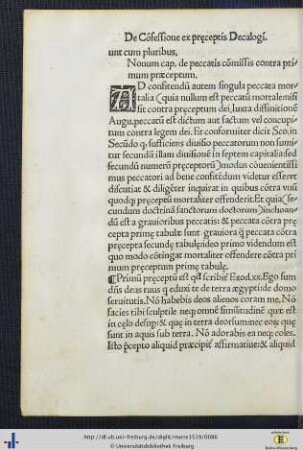 De Cõfessione ex pręceptis Decalogi.
unt cum pluribus.
Nonum cap. de peccatis cõmissis contra pri
mum præceptum.
AD confitendũ autem singula peccata mor
talia (quia nullum est peccatũ mortale nisi
sit contra pręceptum dei, Iuxta diffinitionẽ
Augu. peccatũ est dictum aut factum vel concupi
tum contra legem dei. Et conformiter dicit Sco. in
Secũdo q. sufficiens diuisio peccatorum non sumi
tur secundũ illam diuisionẽ in septem capitalia sed
secundũ numerũ pręceptorũ) modus cõuenientissi
mus peccatori ad bene confitẽdum videtur esse vt
discutiat & diligẽter inquirat in quibus cõtra vnũ
quodq; pręceptũ mortaliter offenderit. Et quia se
cundum doctrinã sanctorum doctorum inchoan
dũ est a grauioribus peccatis & peccata cõtra prę
cepta primę tabulę sunt grauiora q̃ peccata cõtra
pręcepta secundę tabulę, ideo primo videndum est
quo modo cõtingat mortaliter offendere cõtra pri
mum pręceptum primę tabulę.
¶ Primũ pręceptũ est qd scribiť Exod. xx. Ego sum
dñs deus tuus q eduxi te de terra ægypti de domo
seruitutis. Nõ habebis deos alienos coram me. Nõ
facies tibi sculptile neq; omnẽ similitudinẽ quæ est
in cęlo desup: & quę in terra deorsum: nec eoꝝ quę
sunt in aquis sub terra. Nõ adorabis ea neq; coles.
Isto pręcepto aliquid præcipiť affirmatiue: & aliquid
http://dl.ub.uni-freiburg.de/diglit/maier1519/0086
© Universitätsbibliothek Freiburg